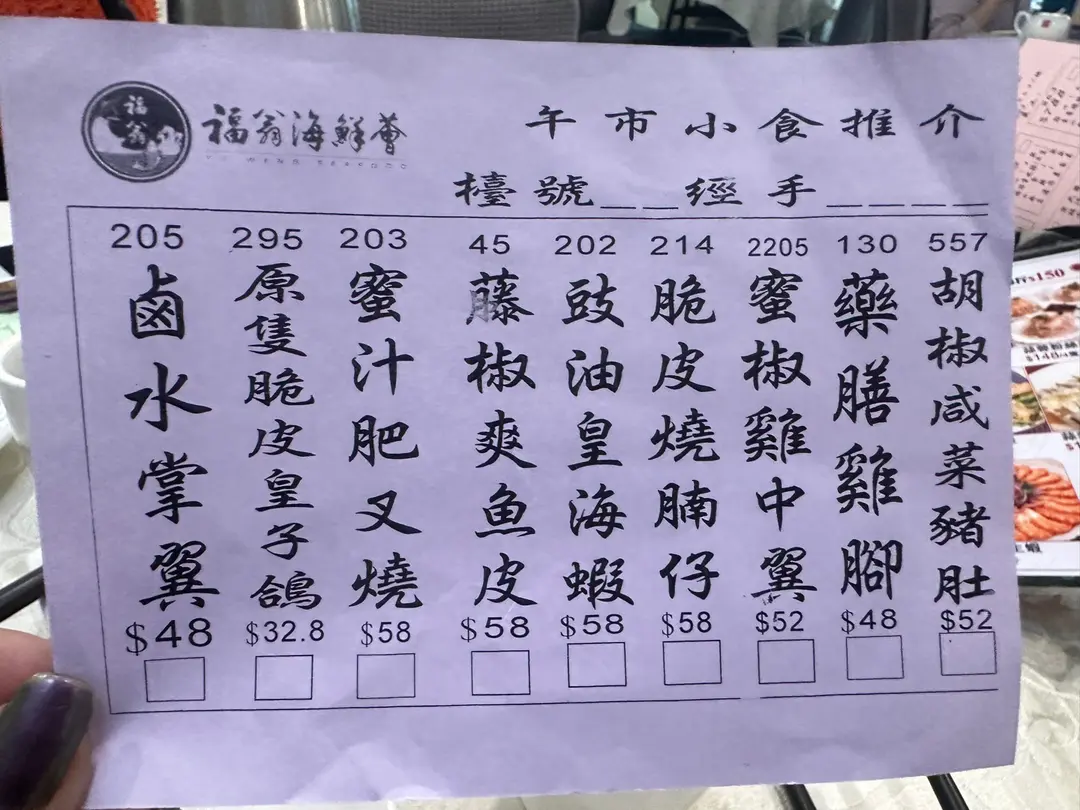 福翁
福翁海鮮薈
午市小食推介
檯號__經手____
557
胡椒咸菜豬肚
$52
130
藥膳雞腳
$48
2205
蜜椒雞中翼
$52
214
脆皮燒腩仔
$58
202
豉油皇海蝦
$58
45
藤椒爽魚皮
$58
203
蜜汁肥叉燒
$58
295
原隻脆皮皇子鴿
$32.8
205
鹵水掌翼
$48